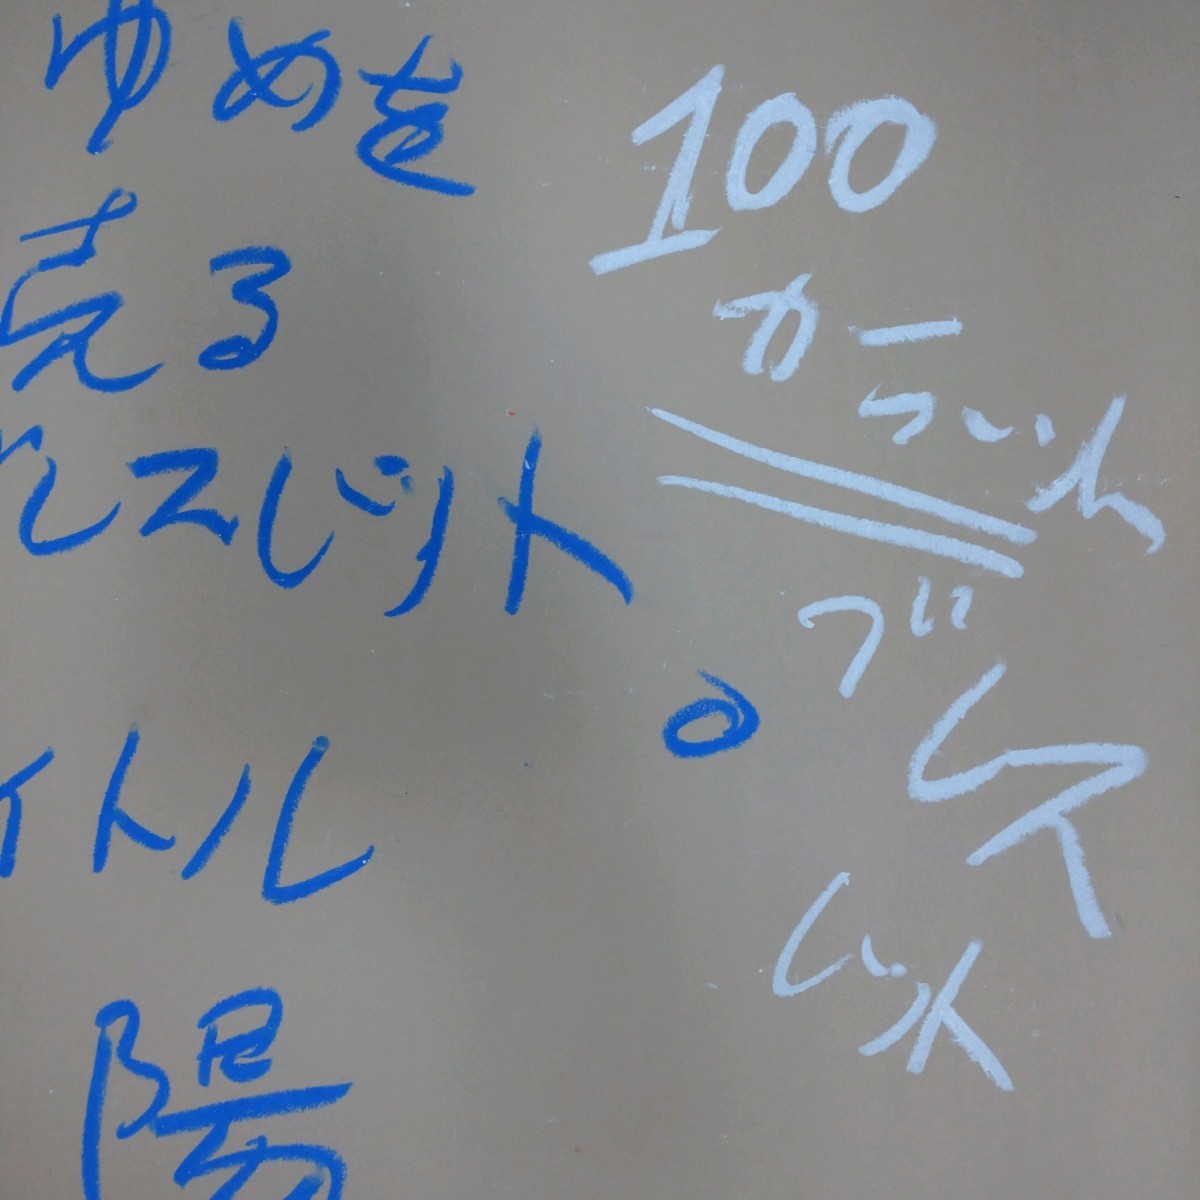 ゆめを
売る
レスレット
。
イトル
陽
100
カラット
ブ
レス
レット